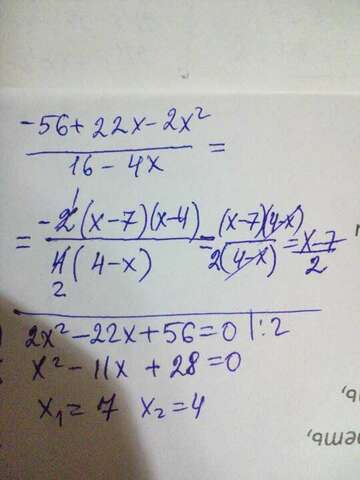 -56+22x-2x²
16-4x =
= -2(x-7)(x-4) / 4(4-x) = (x-7)(4-x) / 2(4-x) = x-7 / 2
2x²-22x+56=0 |:2
x²-11x+28=0
x₁=7 x₂=4
ть,
еть